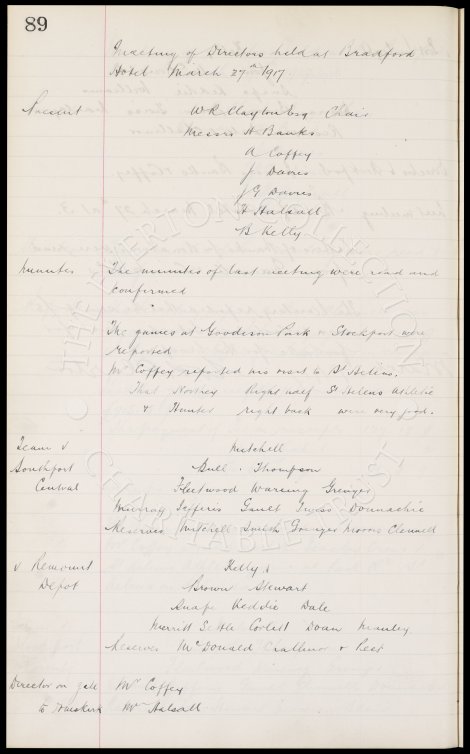 89
Meeting of Directors held at Bradford
Hotel March 27th 1917.
Present W R Clayton Esq Chair
Messrs A Banks
A Coffey
J. Davies
J G Davies
H Halsall
B Kelly
Minutes The minutes of last meeting were read and
confirmed
The games at Goodison Park & Stockport were
reported
Mr Coffey reported his visit to St Helens.
That Right half St Helens Athletic
& Hunter right back were very good.
Team v Mitchell
Southport Bull. Thompson
Central Fleetwood Wareing Grenyer
Murray Jefferis Gault Donnachie
Reserves Mitchell Smith Grenyer Morris Clennell
v Remount Kelly
Depot Brown Stewart
Knape Keddie Dale
Merritt Corlett Doan
Reserves McDonald Challinor &
Director on gate Mr Coffey
to Mr Halsall
THE EVERTON COLLECTION
CHARITABLE TRUST